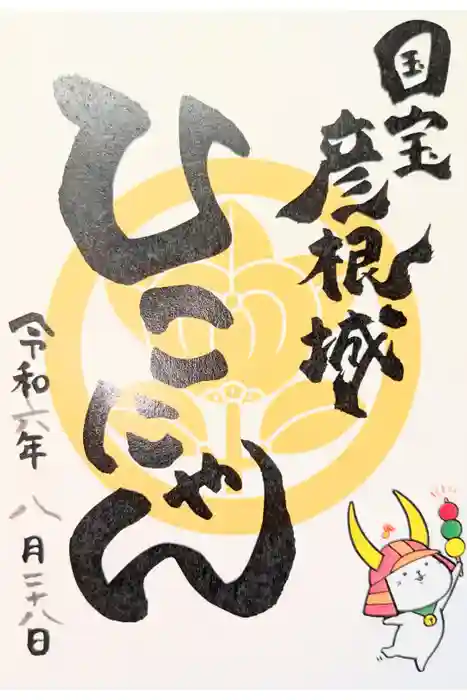 国宝
彦根城
ひこにゃん
令和六年 八月二十八日